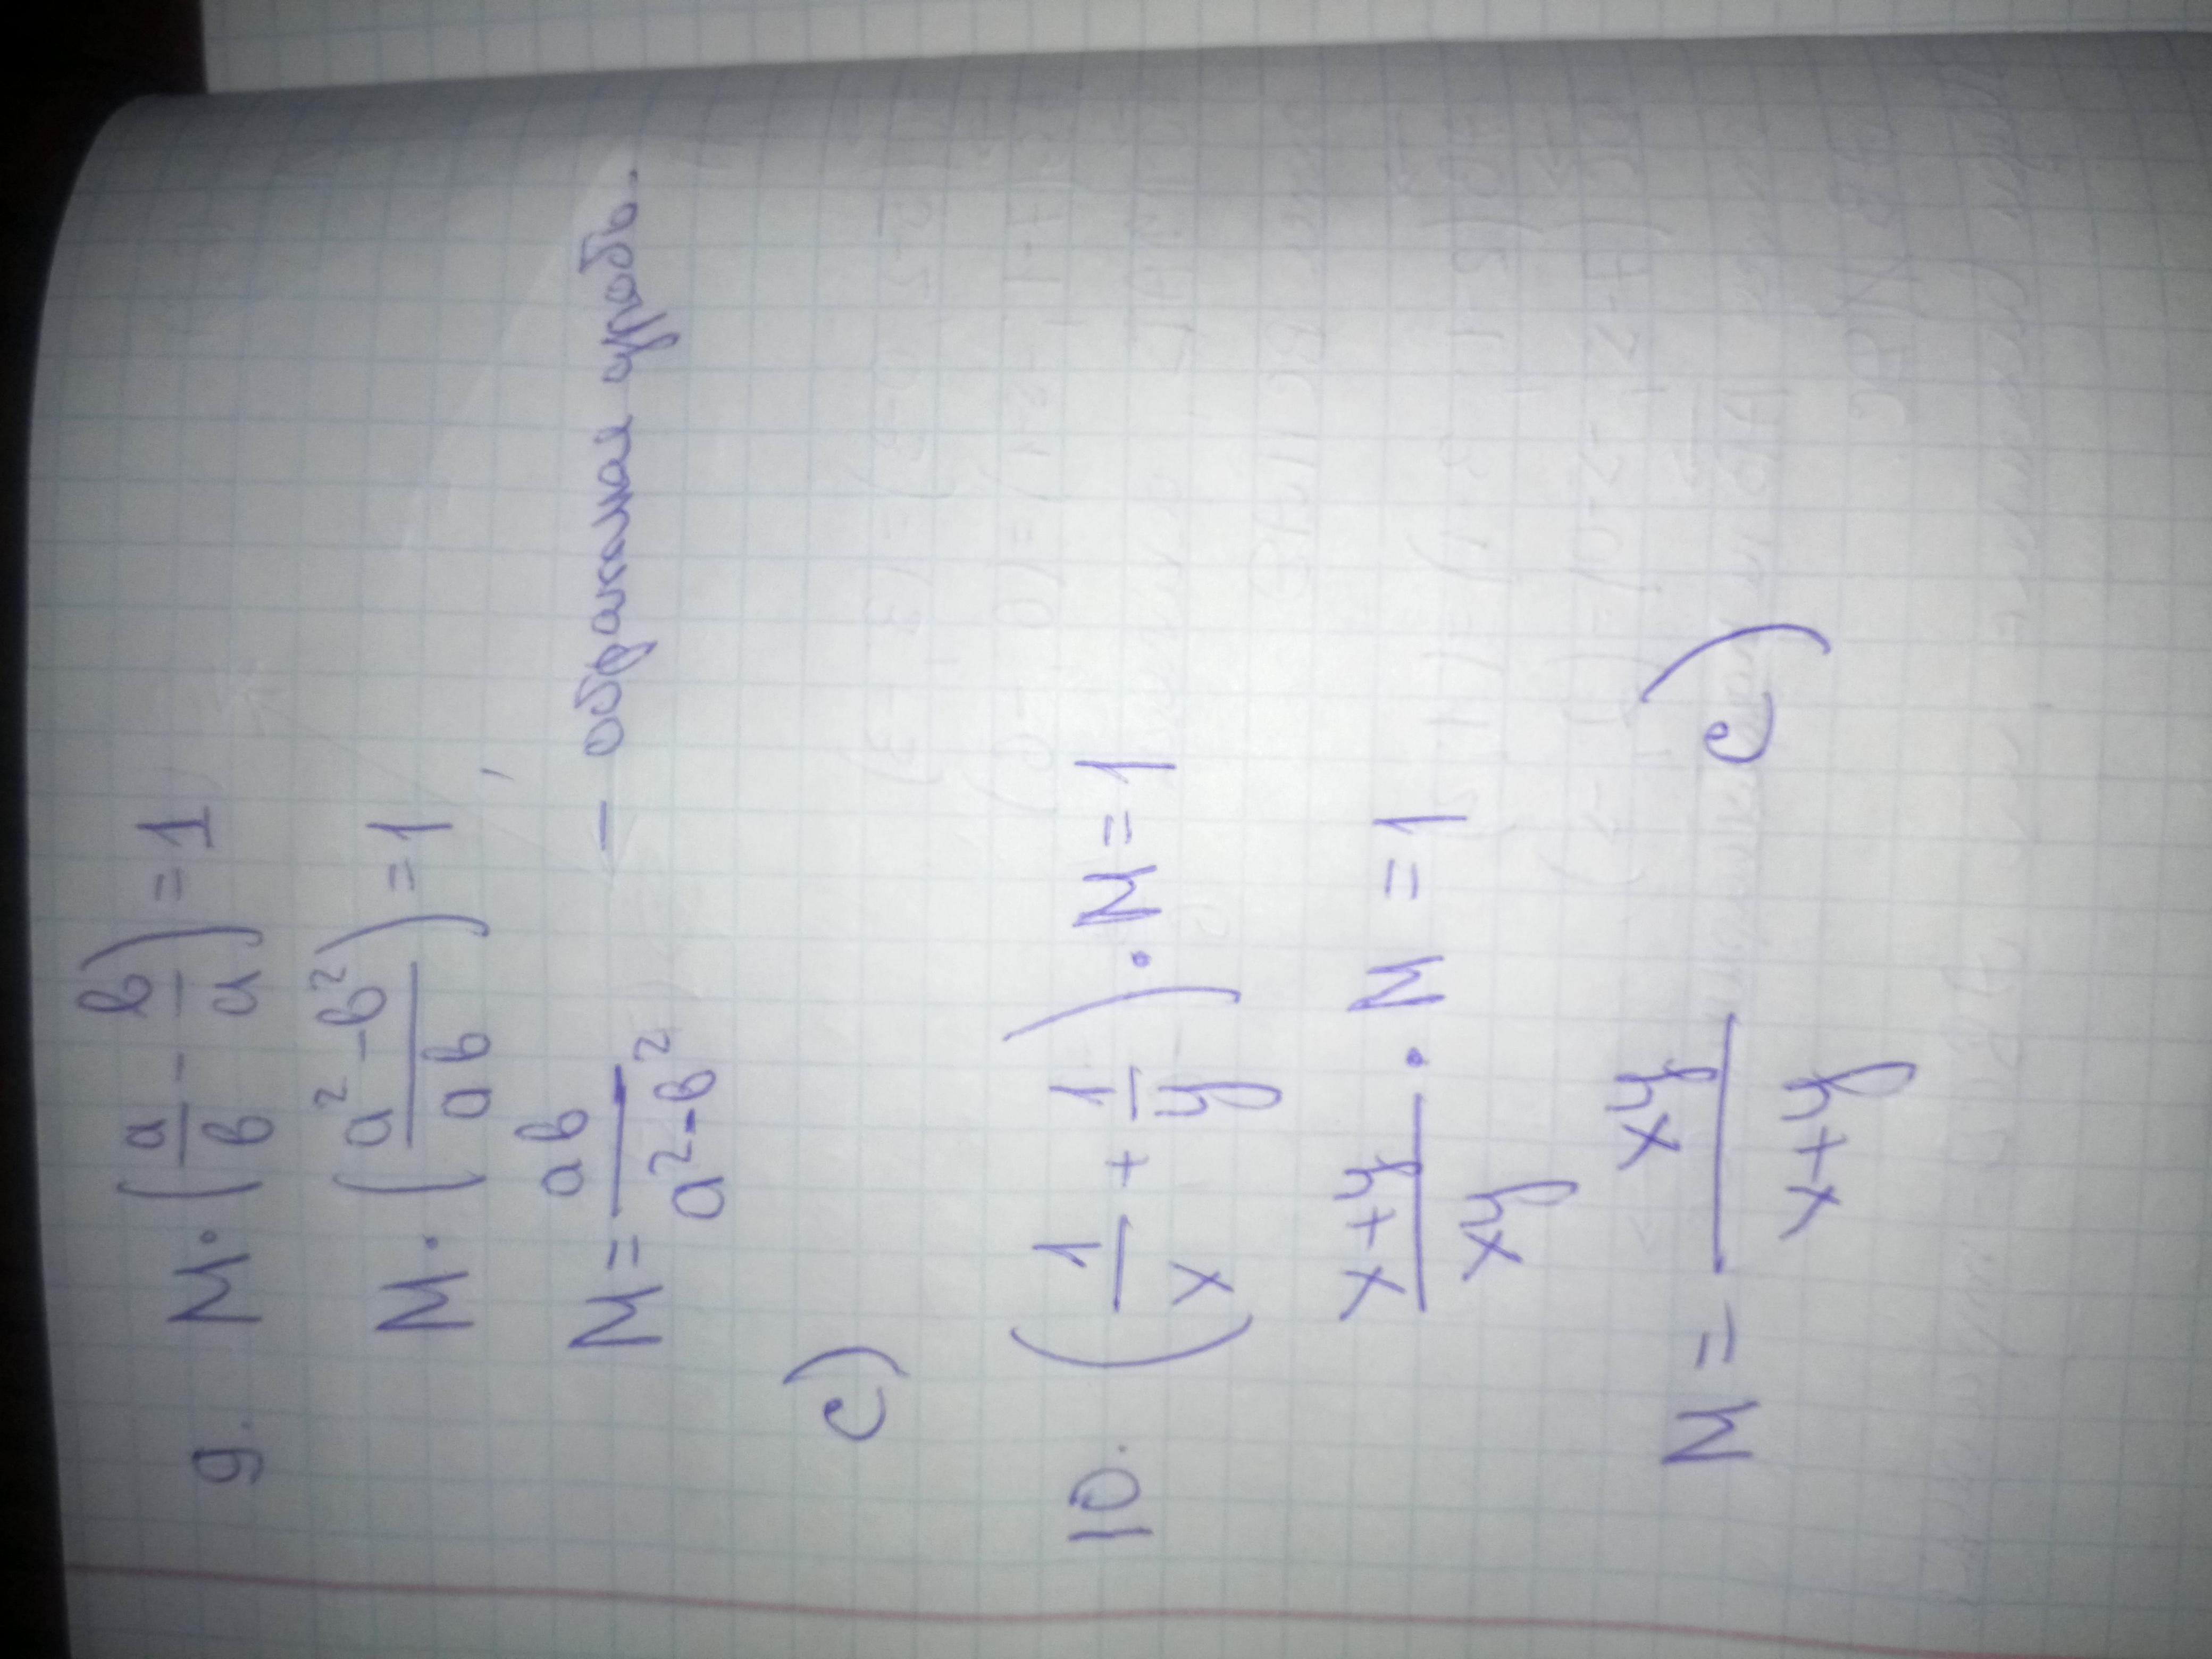 9. M·(a/b - b/a) = 1
M·(a² - b²/ab) = 1
M = ab/a² - b² - обратная дробь.
c)
10. (1/x + 1/y)·M = 1
x+y/xy · M = 1
M = xy/x+y c)